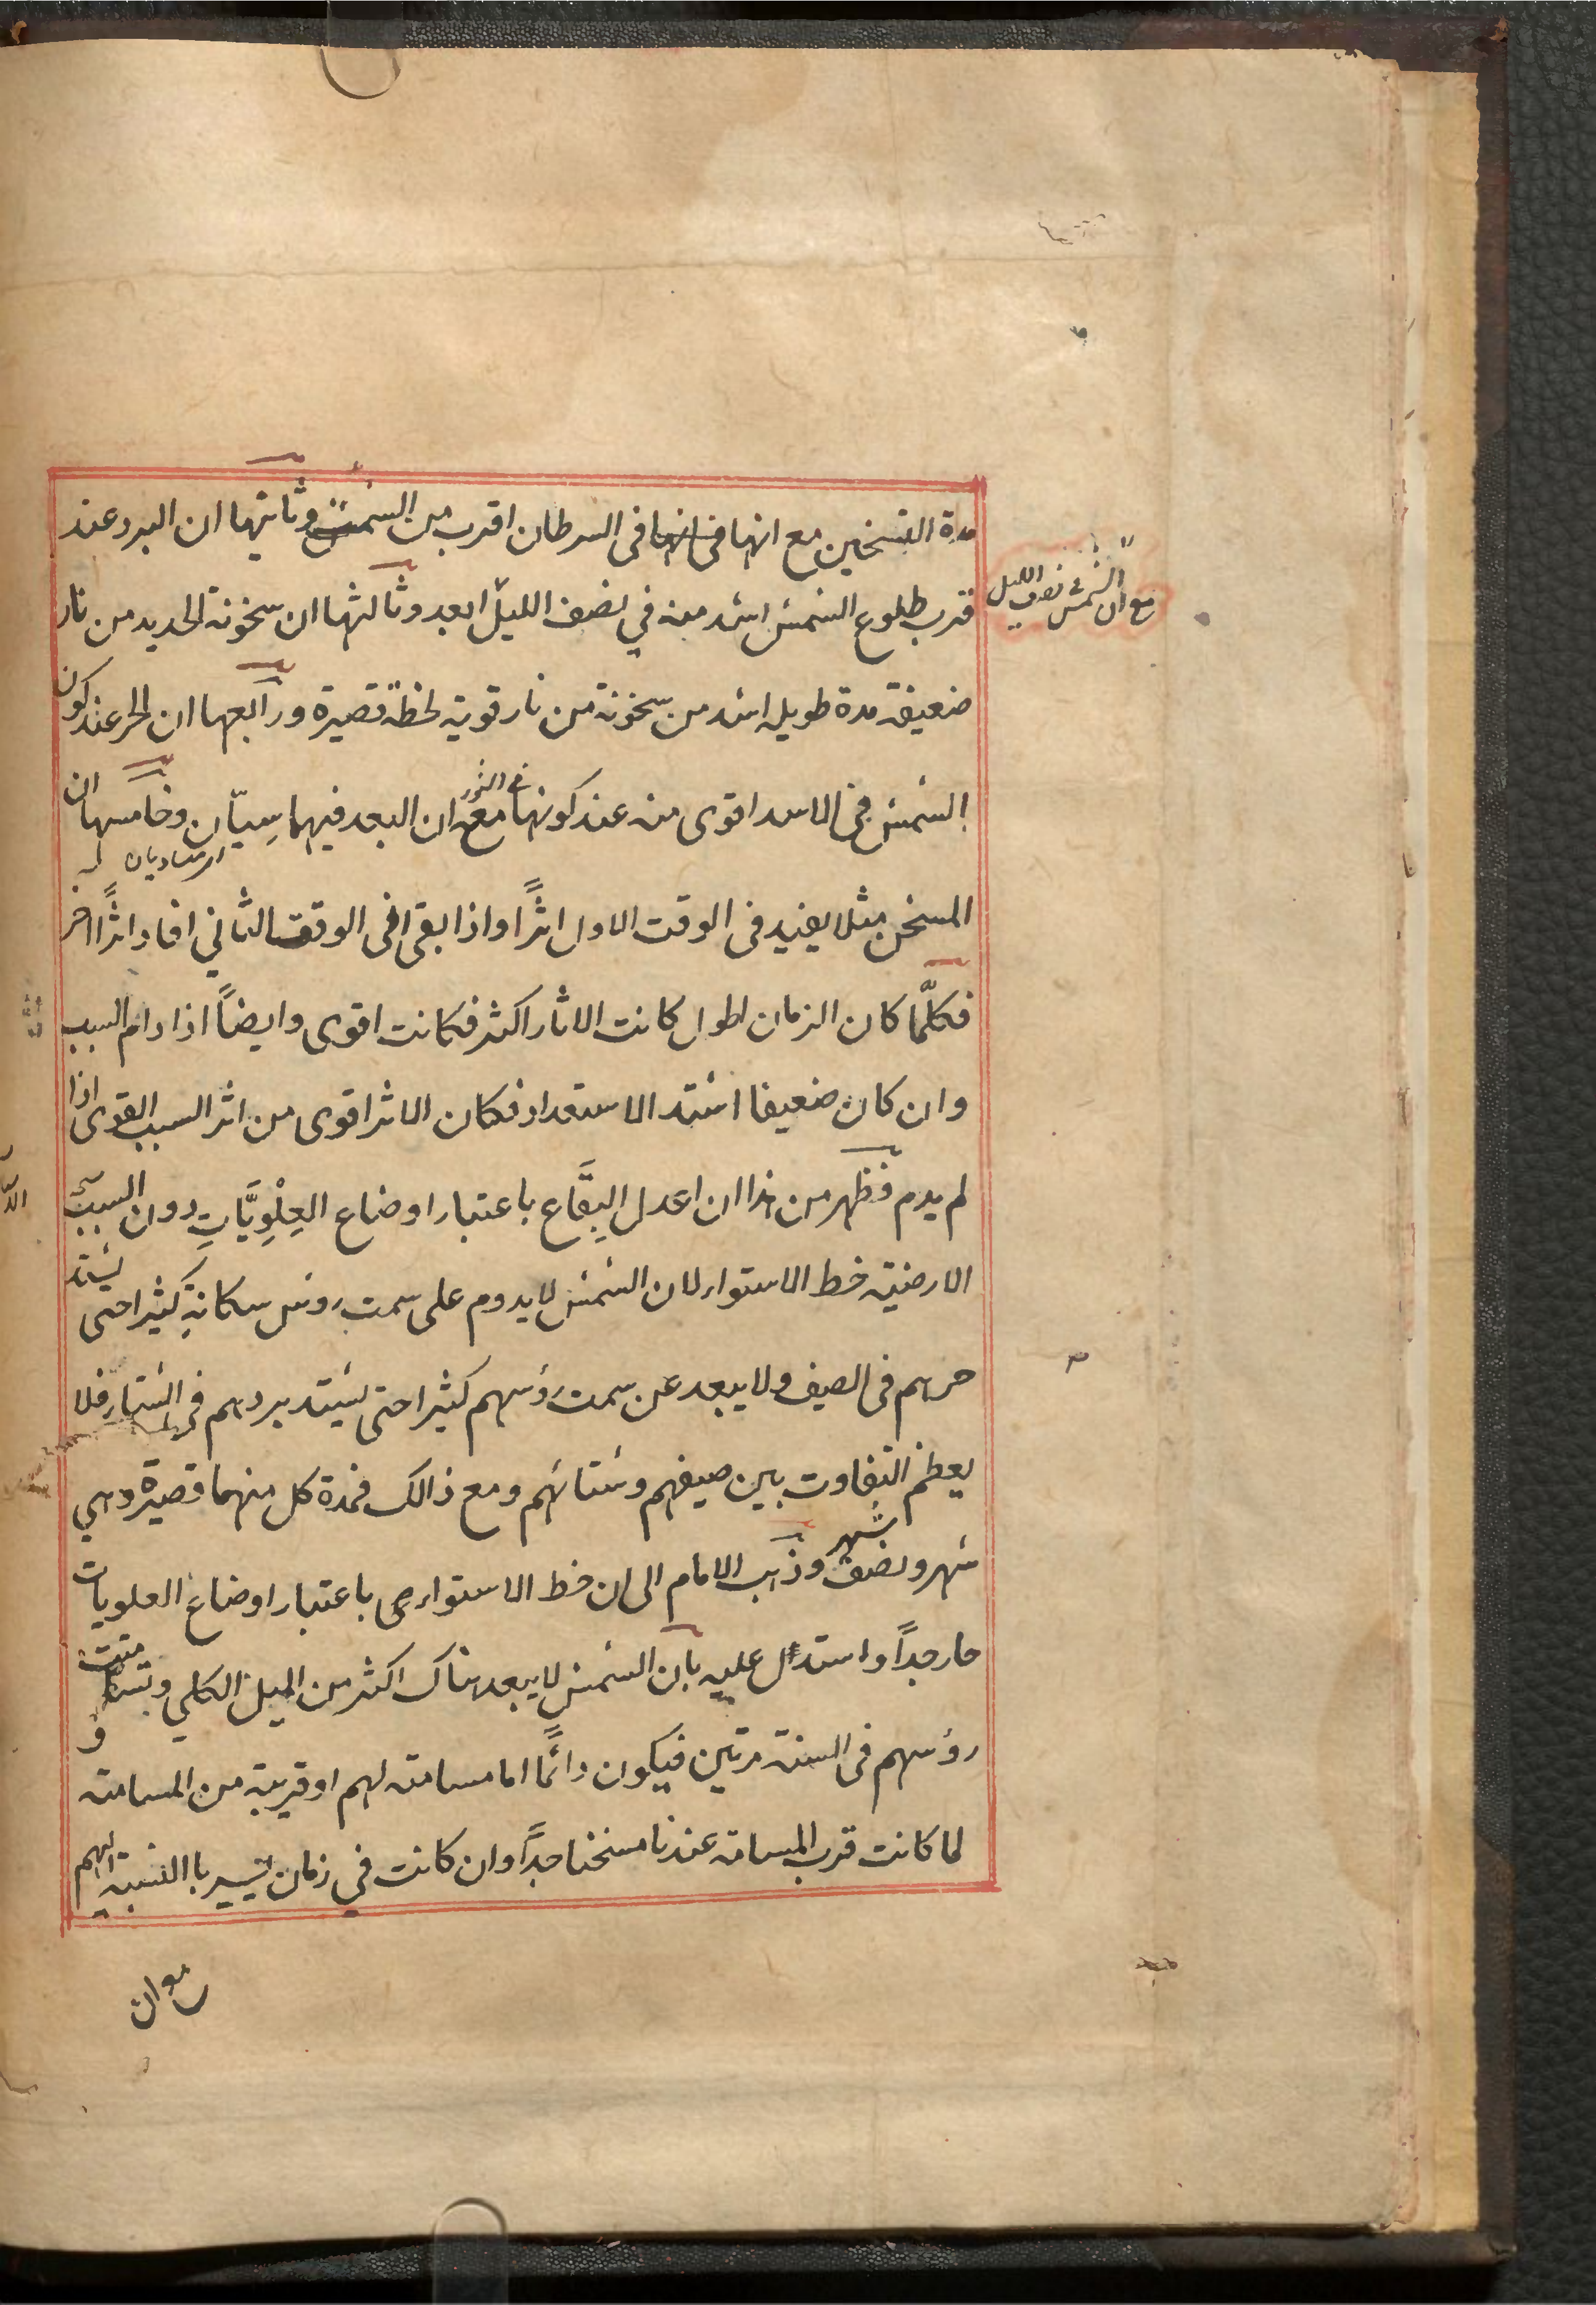 مدة التسخين مع انها فى السرطان اقرب من السمت وثانيتها ان البرد عند
قرب طلوع الشمس اشد منه في نصف الليل ابعد وثالثها ان سخونة الحديد من نار
مع ان الشمس فى نصف الليل
ضعيفة مدة طويله اشد من سخونة من نار قوية لحظة قصيرة ورابعها ان الحر عند كون
الشمس فى الاسد اقوى منه عند كونها فى الثور مع ان البعد فيهما سيّان وخامسها ان
اى متساويان
المسخن مثلا يفيد فى الوقت الاول اثرًا واذا بقى فى الوقت الثاني افاد اثرًا اخر
فكلّما كان الزمان اطول كانت الاثار اكثر فكانت اقوى وايضًا اذا دام السبب
وان كان ضعيفا اشتد الاستعداد فكان الاثر اقوى من اثر السبب القوى اذا
لم يدم فظهر من هذا ان اعدل البِقَاع باعتبار اوضاع العِلْوِيَّاتِ دون السبب
الارضية خط الاستواء لان الشمس لا يدوم على سمت روس سكانهِ كثيرا حتى يشتد
حرهم فى الصيف ولا يبعد عن سمت رؤسهم كثيرا حتى يشتد بردهم فى الشتاء فلا
يعظم التفاوت بين صيفهم وشتائهم ومع ذالك فمدة كل منهما قصيرة وهي
شهر ونصف شهر وذهب الامام الى ان خط الاستواء هى باعتبار اوضاع العلويات
حار جداً واستدل عليه بان الشمس لا يبعد هناك اكثر من الميل الكلي وتسامت
رؤسهم فى السنة مرتين فيكون دائمًا اما مسامتة لهم او قريبة من المسامتة و
لما كانت قرب المسامتة عندنا مسخنا جداً وان كانت في زمان يسير باالنسبة اليهم
مع ان